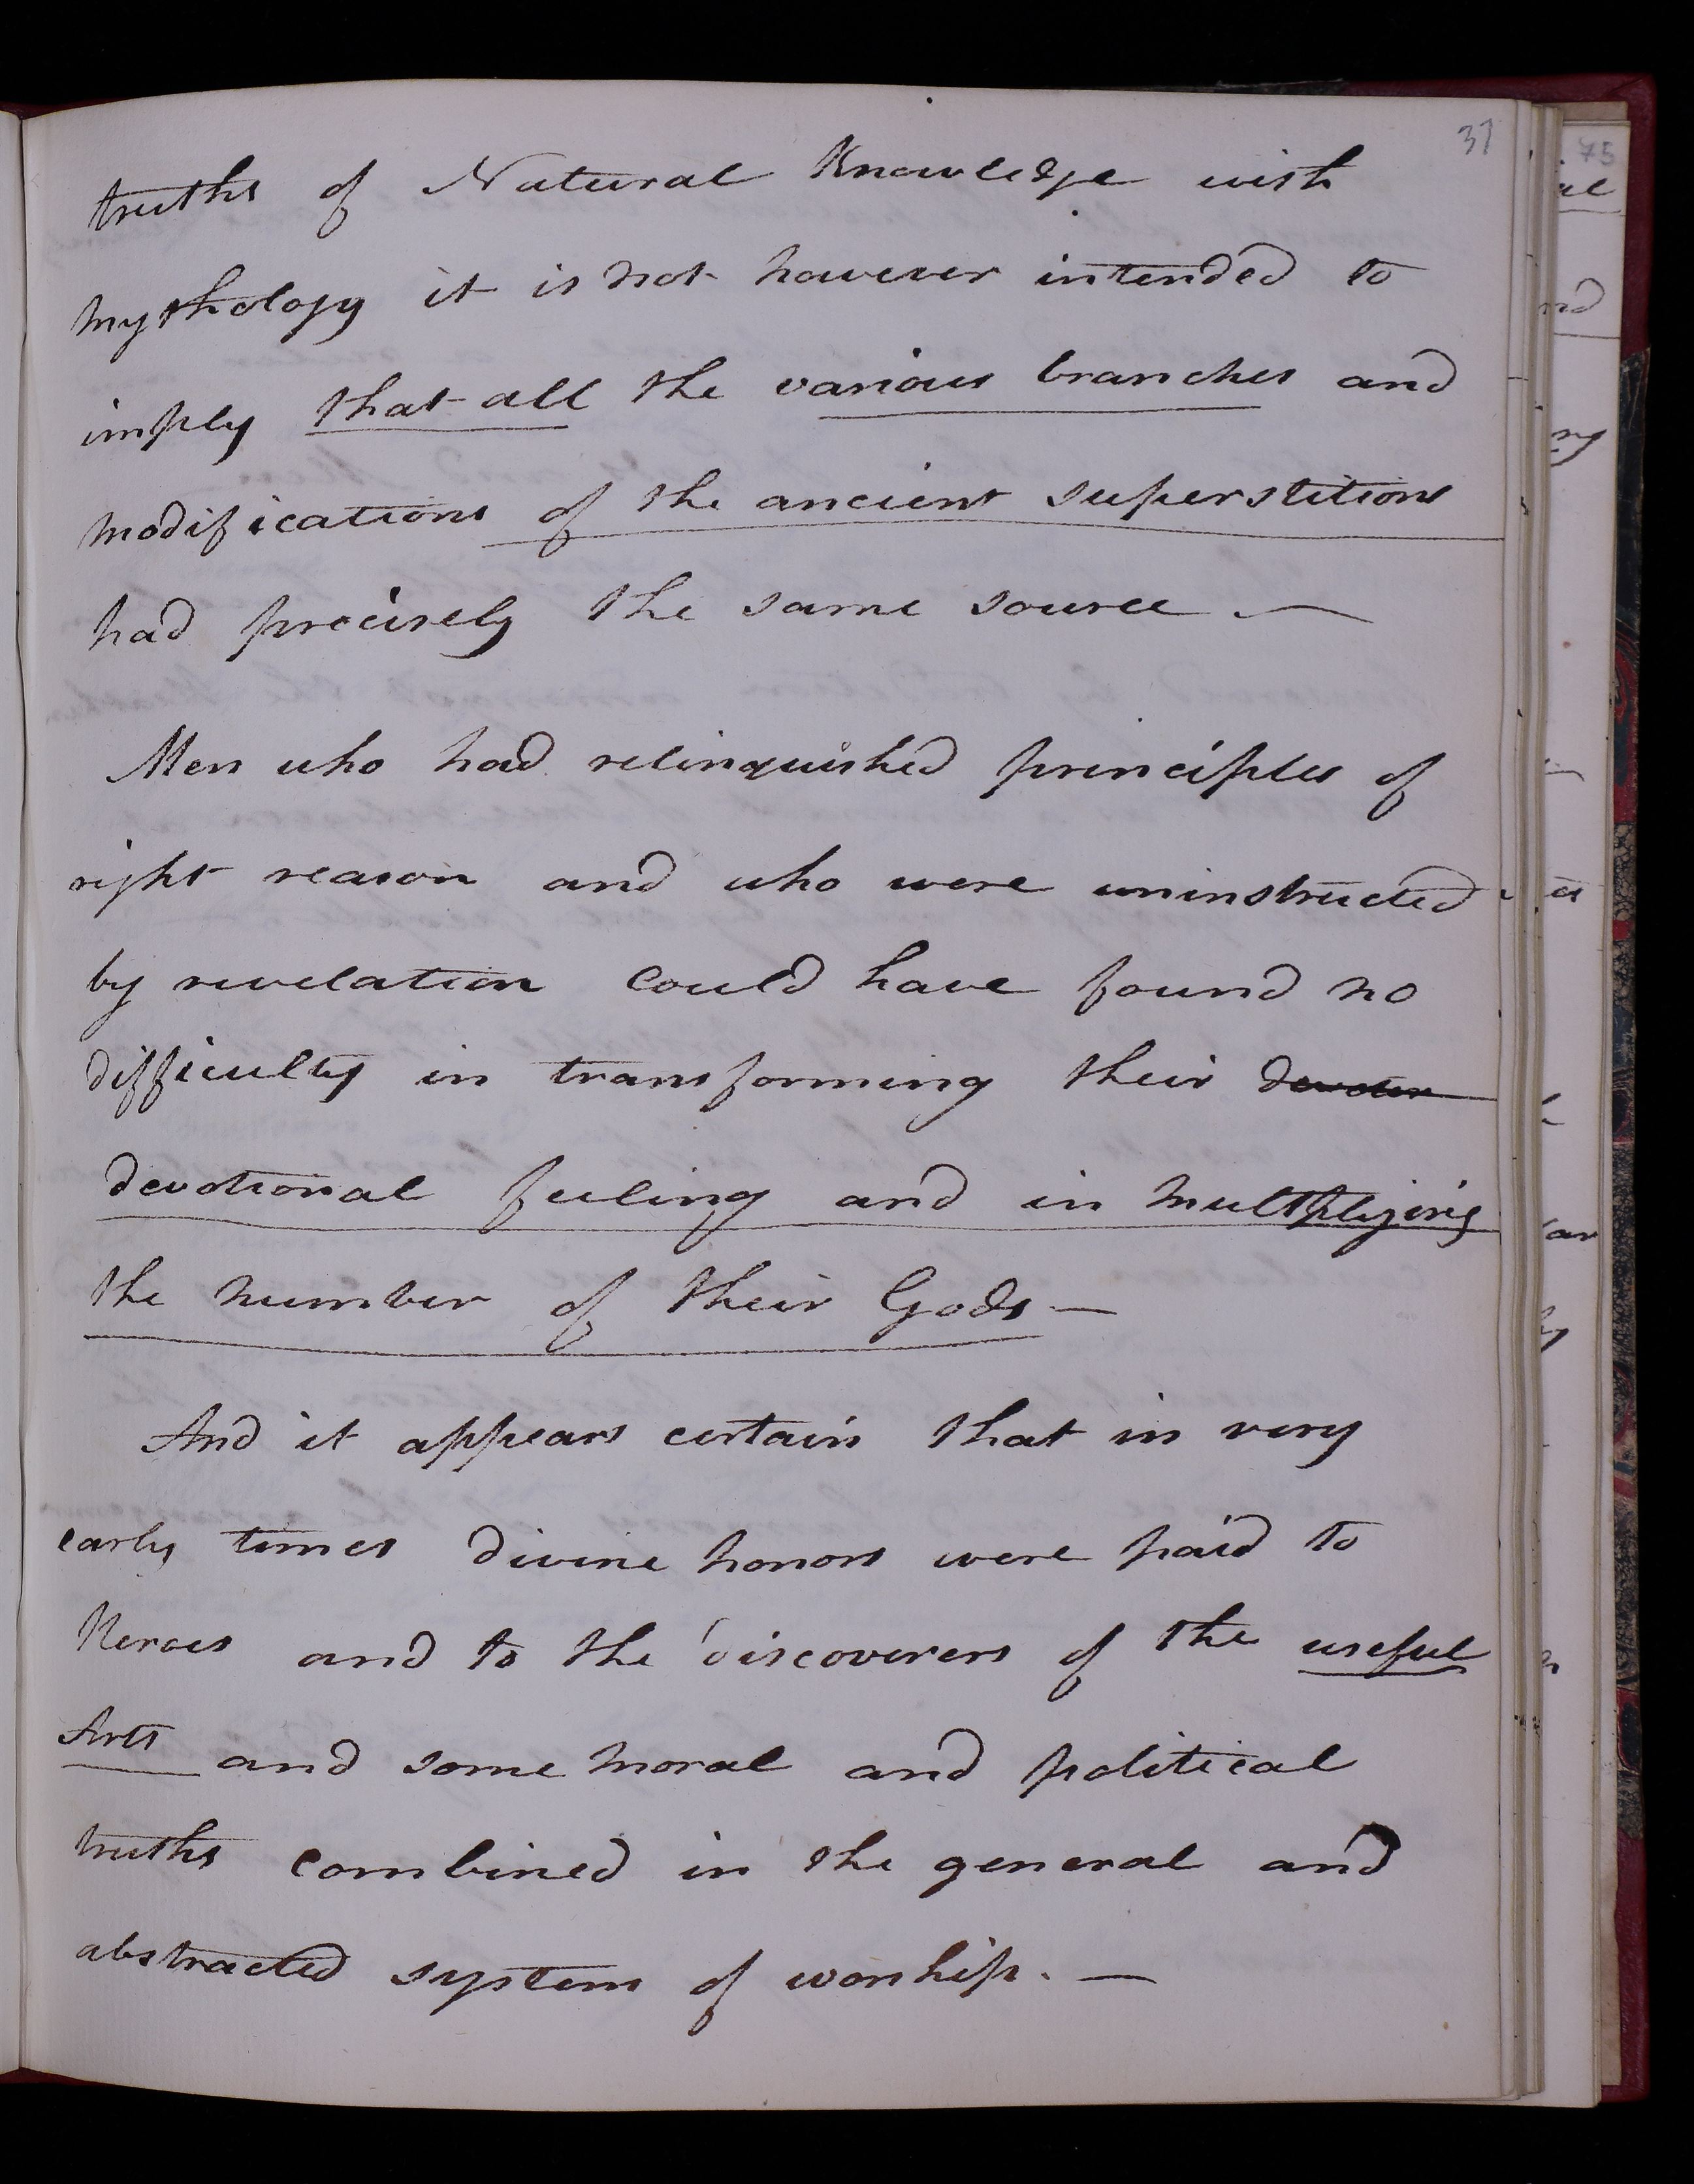 37
truths of Natural Knowledge with
mythology it is not however intended to
imply that all the various branches and
modifications of the ancient superstitions
had precisely the same source —
Men who had relinquished principles of
right reason and who were uninstructed
by revelation could have found no
difficulty in transforming their
devotional feeling and in multiplying
the number of their Gods —
And it appears certain that in very
early times divine honors were paid to
Heroes and to the discoverers of the useful
Arts and some moral and political
truths combined in the general and
abstracted system of worship. —
75